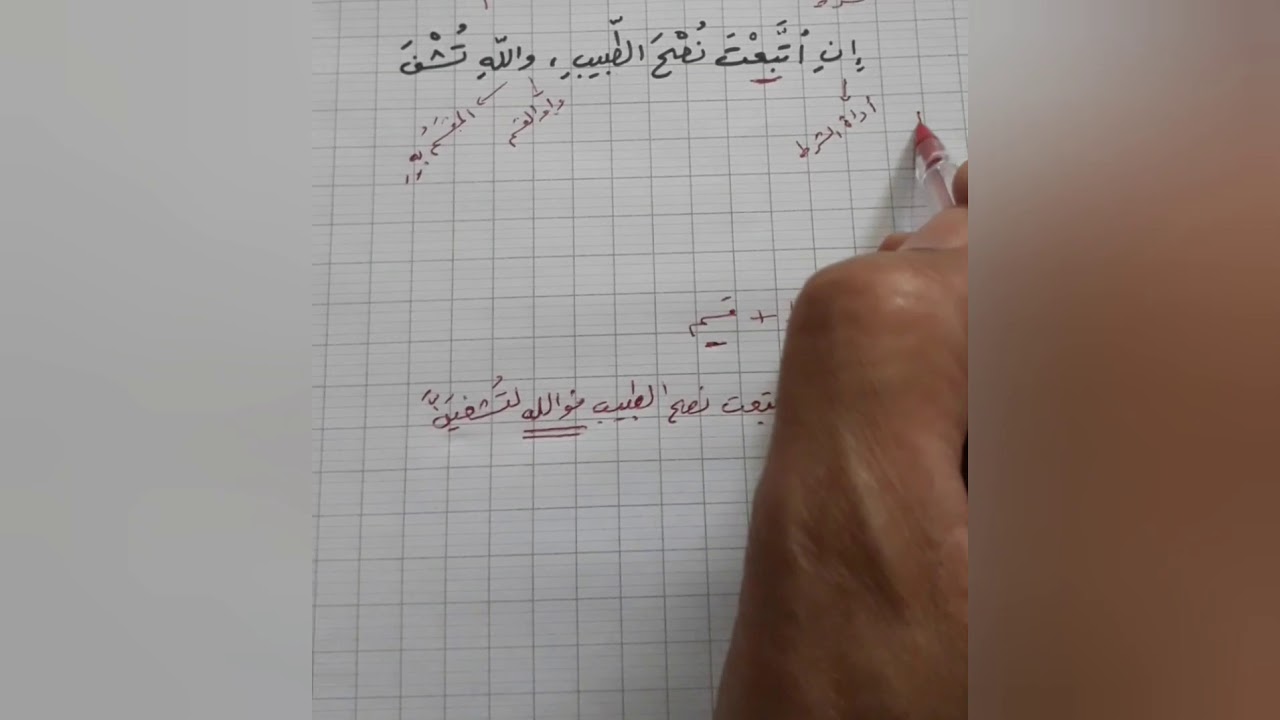 إِنِ اُتَّبَعْتَ نُصْحَ الطَّبِيبِ، واللّهِ تُشْفَ
أداة الشرط
واو القسم
المقسم به
+ قسم
نصح الطبيب فوالله لتُشفيَنَّ